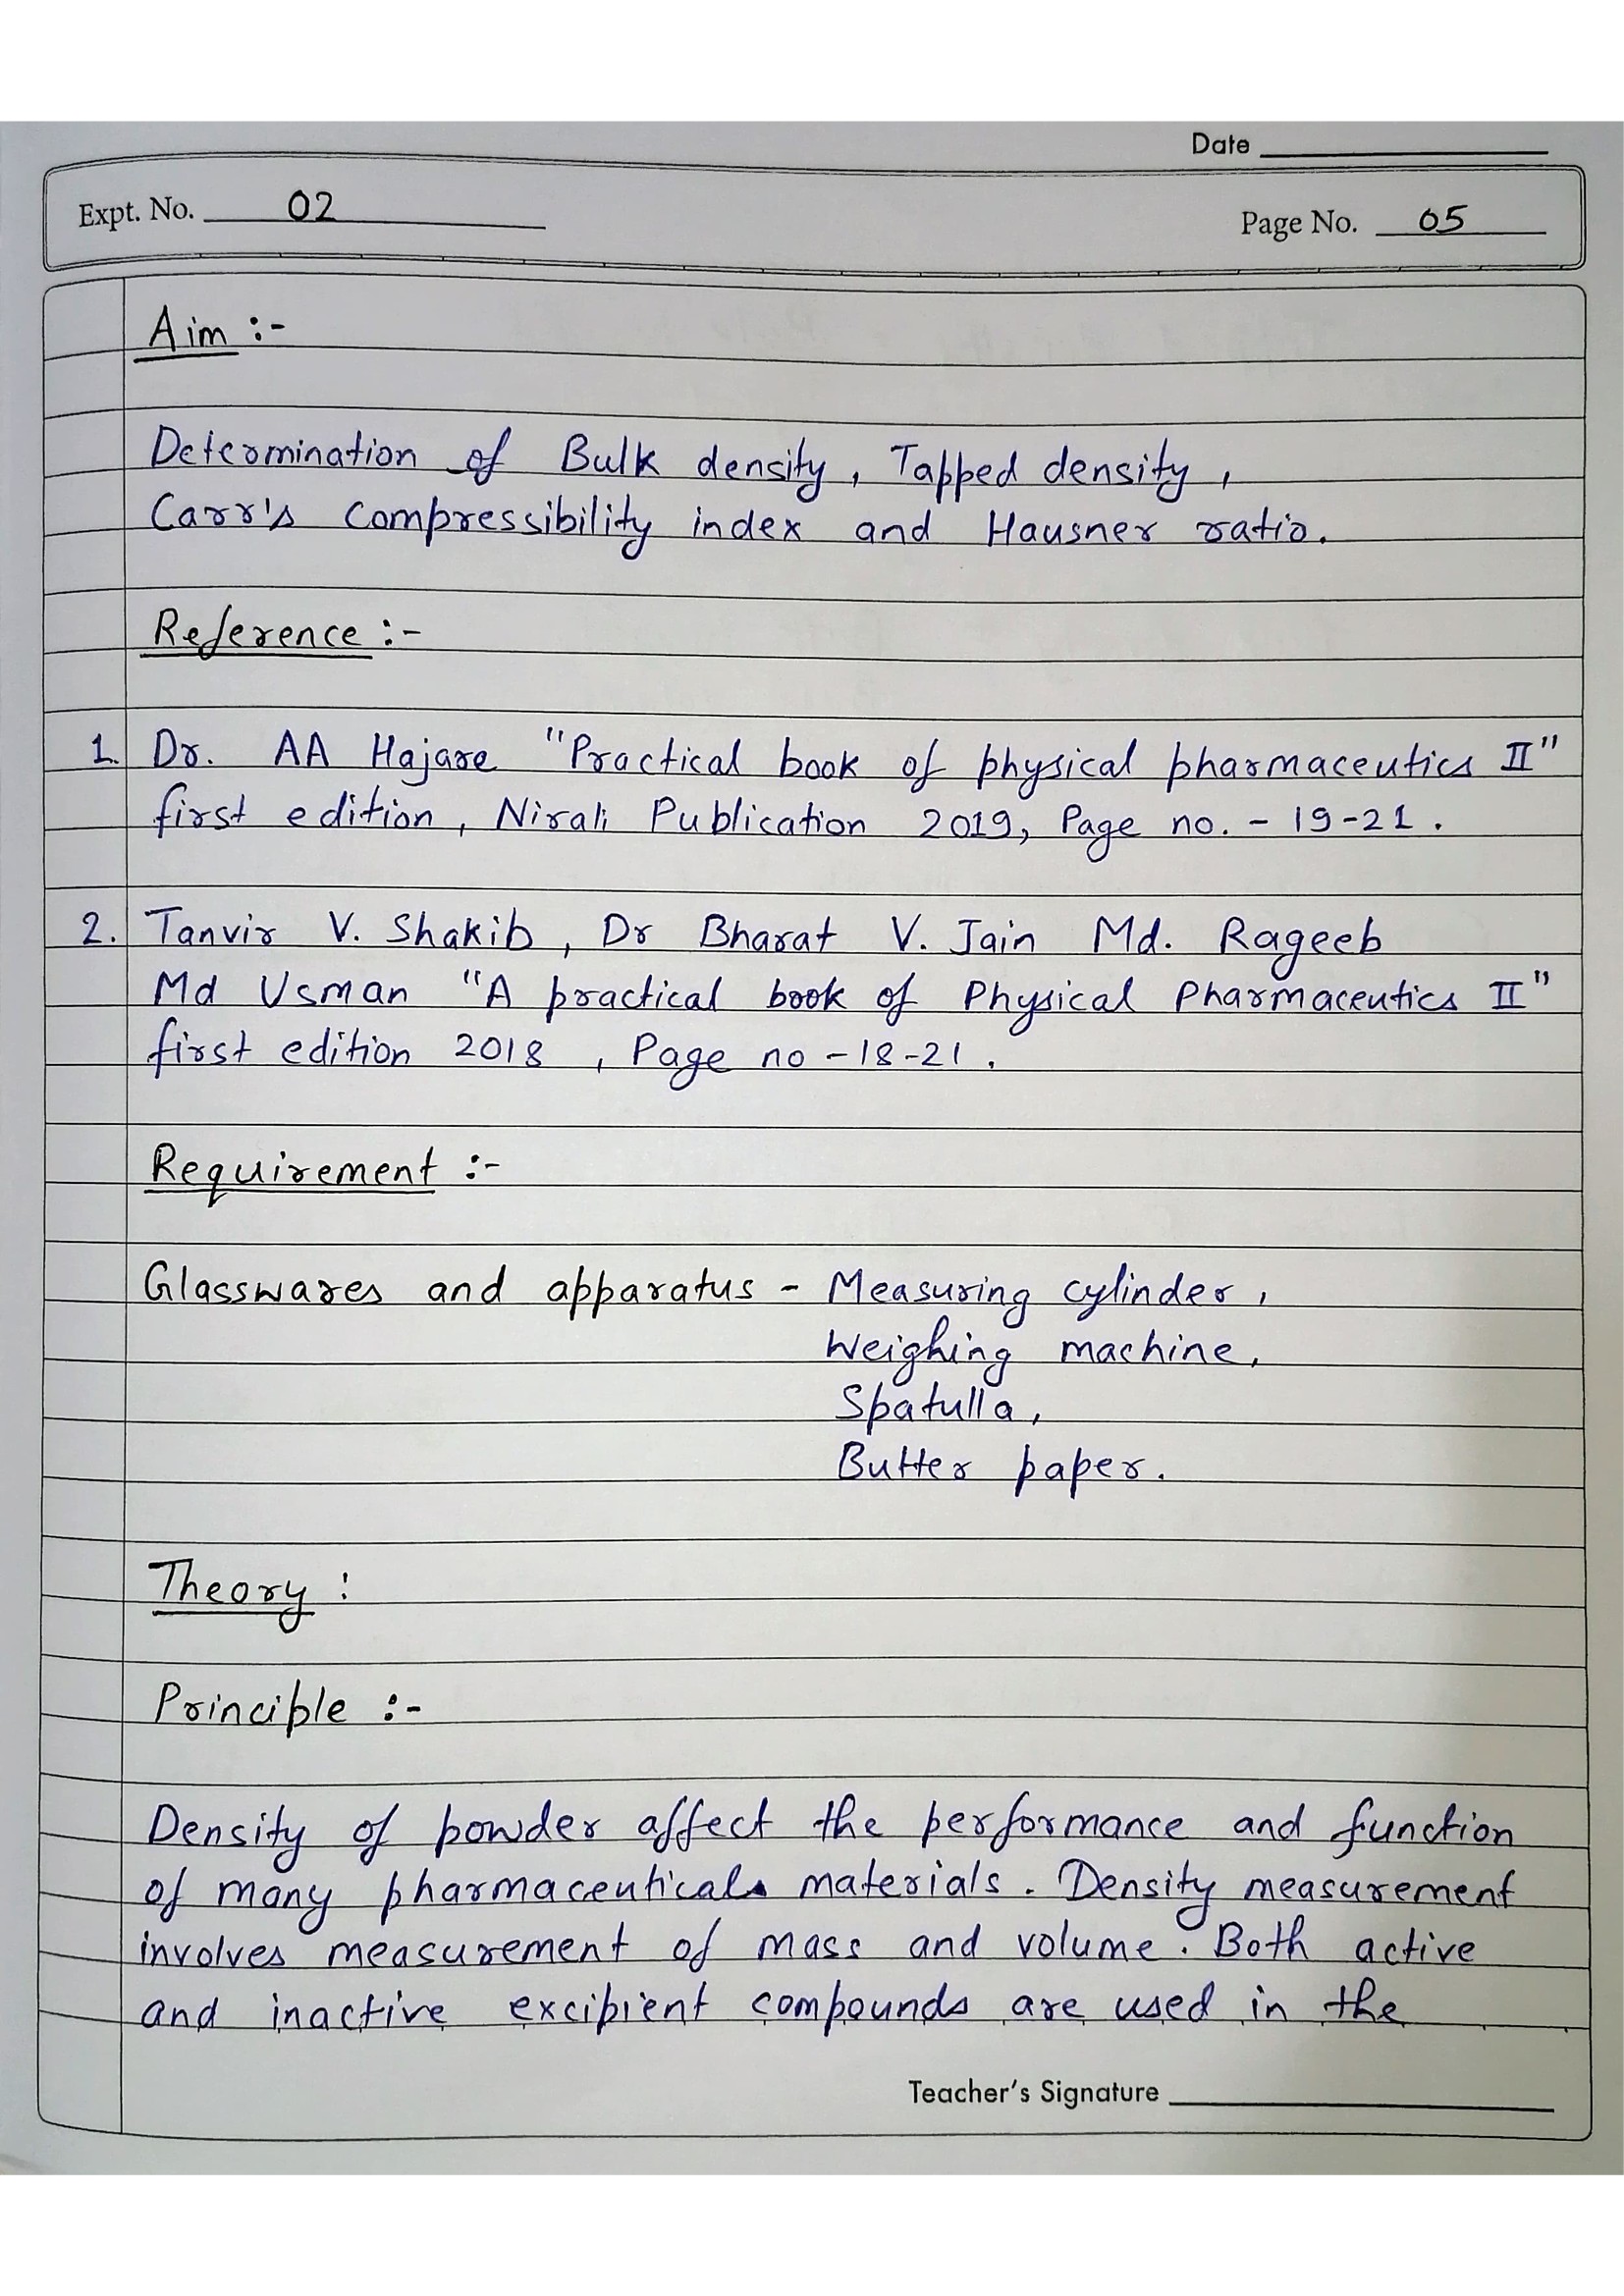 Date
Expt. No. 02
Page No. 05
Aim :-
Determination of Bulk density, Tapped density,
Carr's compressibility index and Hausner ratio.
Reference :-
1. Dr. AA Hajare "Practical book of physical pharmaceutics II"
first edition, Nirali Publication 2019, Page no. - 19-21.
2. Tanvir V. Shakib, Dr Bharat V. Jain Md. Rageeb
Md Usman "A practical book of Physical Pharmaceutics II"
first edition 2018, Page no - 18-21.
Requirement :-
Glasswares and apparatus - Measuring cylinder,
Weighing machine,
Spatulla,
Butter paper.
Theory :
Principle :-
Density of powder affect the performance and function
of many pharmaceuticals materials. Density measurement
involves measurement of mass and volume. Both active
and inactive excipient compounds are used in the
Teacher's Signature